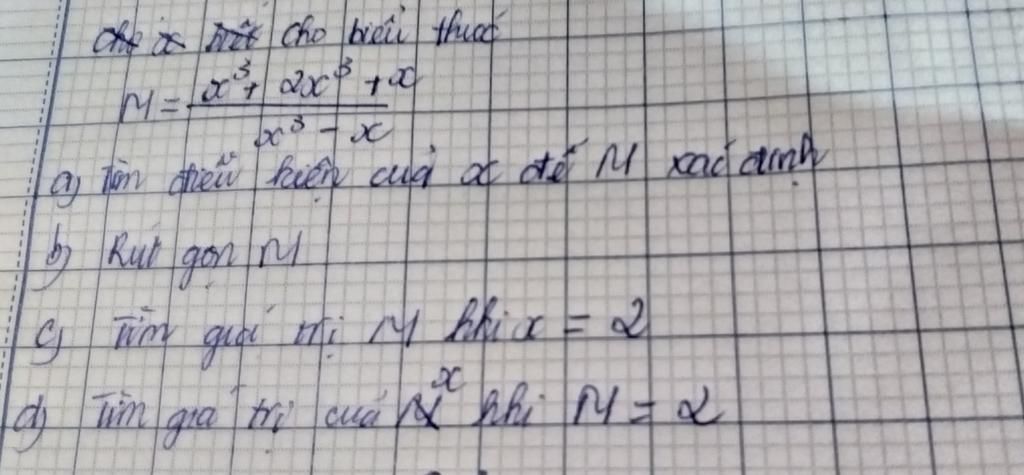 Cho biểu thức
M = x³ + 2x³ + x / x³ - x
a) Tìm điều kiện của x để M xác định
b) Rút gọn M
c) Tìm giá trị M khi x = 2
d) Tìm giá trị của x khi M = 2